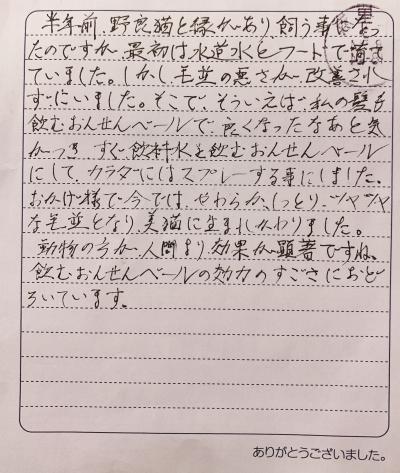 半年前、野良猫と縁があり、飼う事になっ
たのですが、最初は水道水とフードで過ごし
ていました。しかし毛並の悪さが改善され
ずにいました。そこで、そういえば、私の髪も
飲むおんせんベールで良くなったなあと気
がつき すぐ飲料水を飲むおんせんベール
にして、カラダにはスプレーする事にしました。
おかげ様で今では、やわらか、しっとり、ツヤツヤ
な毛並となり、美猫に生まれかわりました。
動物の方が、人間より効果が顕著ですね。
飲むおんせんベールの効力のすごさにおど
ろいています。
ありがとうございました。